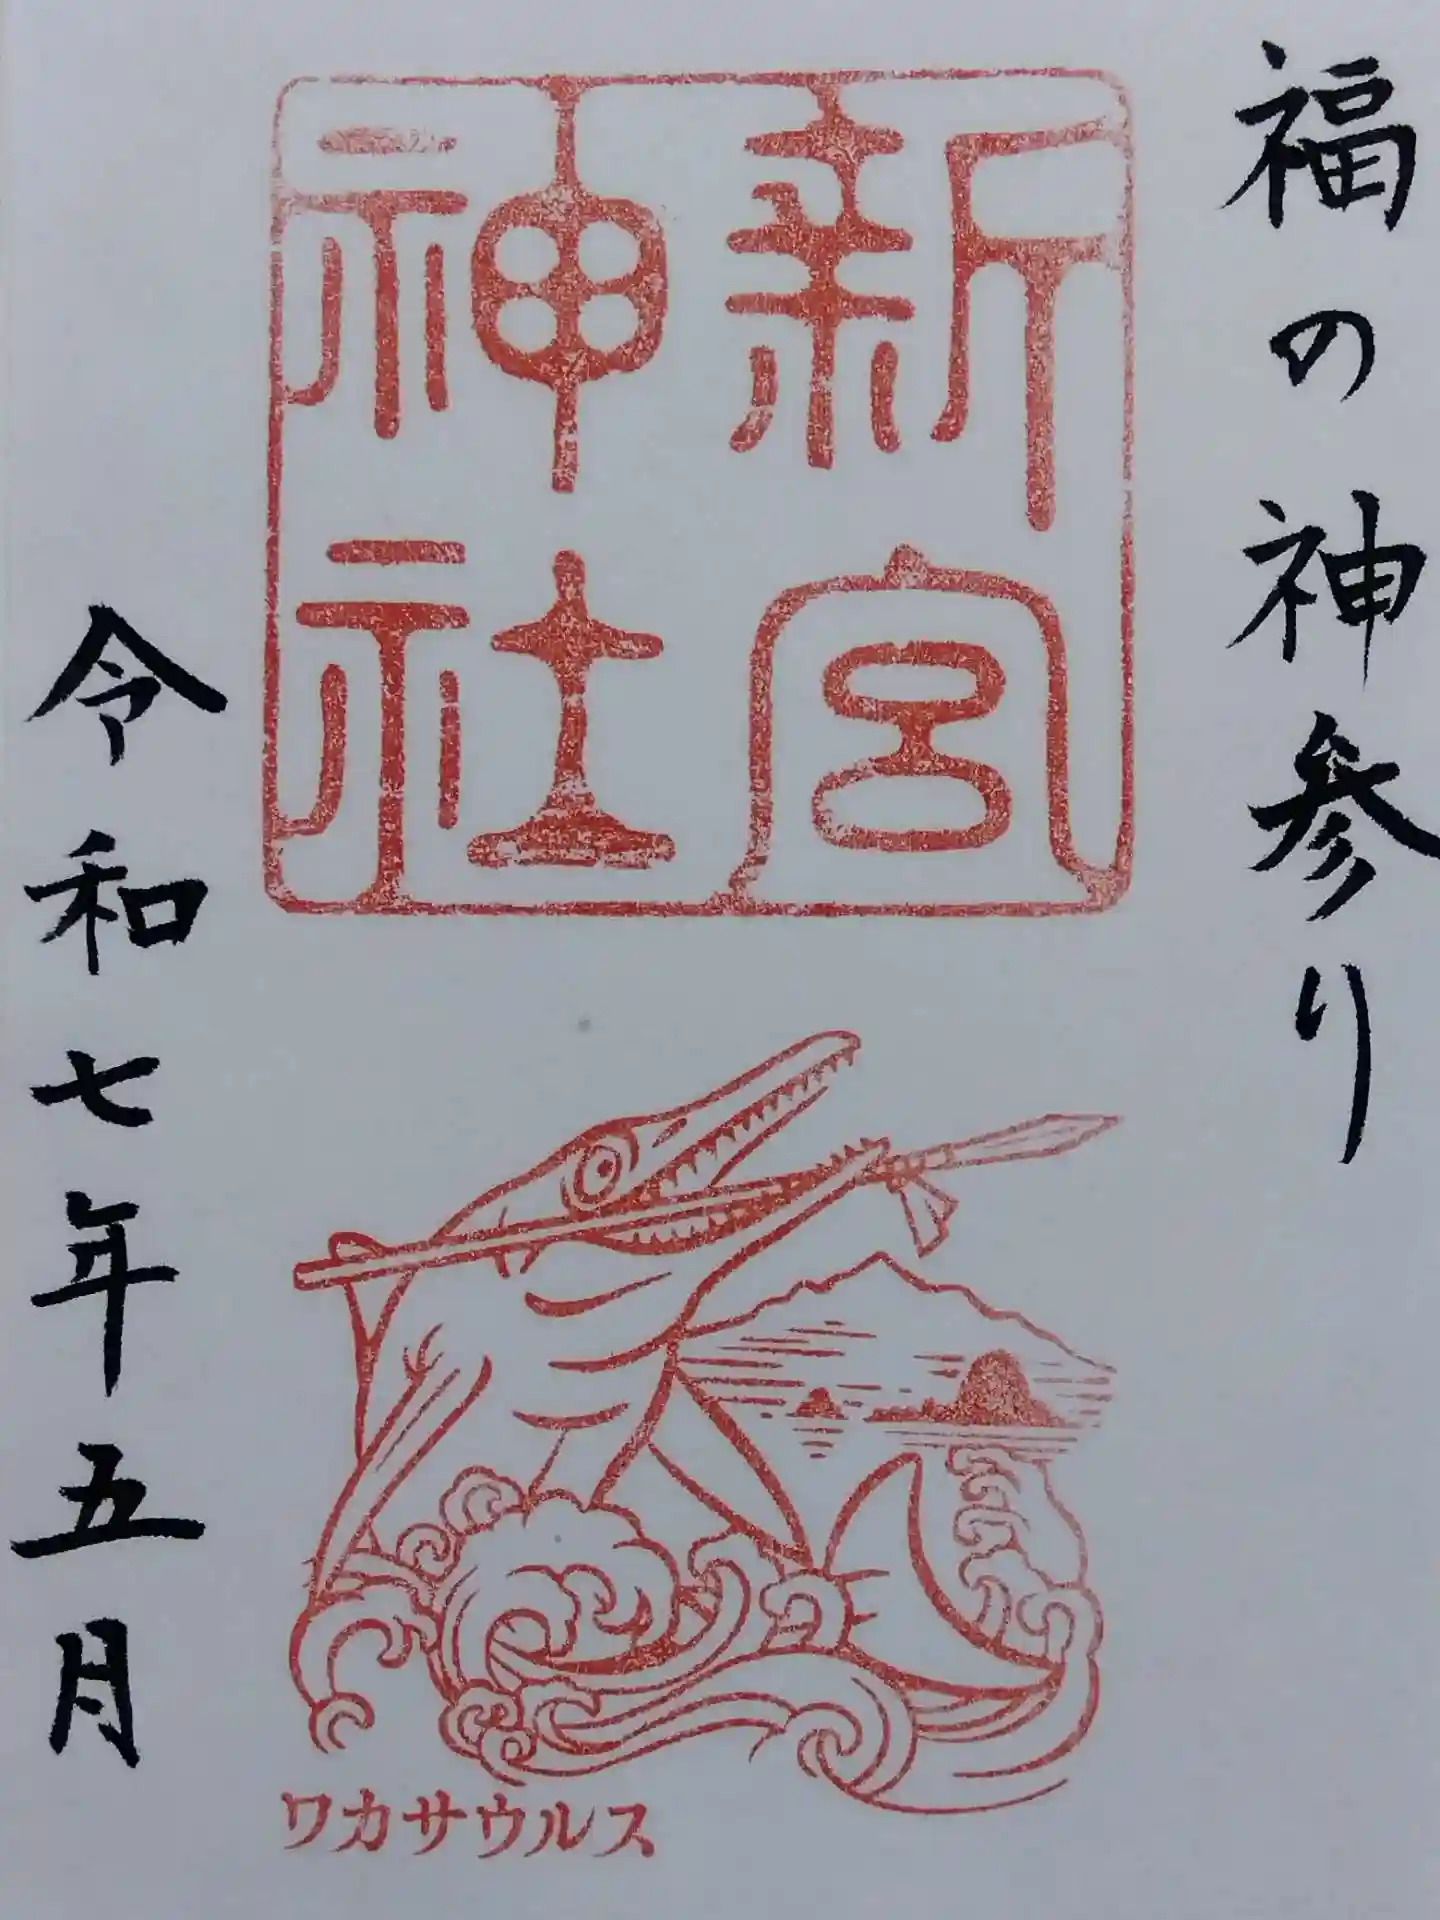 福の神参り
新宮
神社
ワカサウルス
令和七年五月